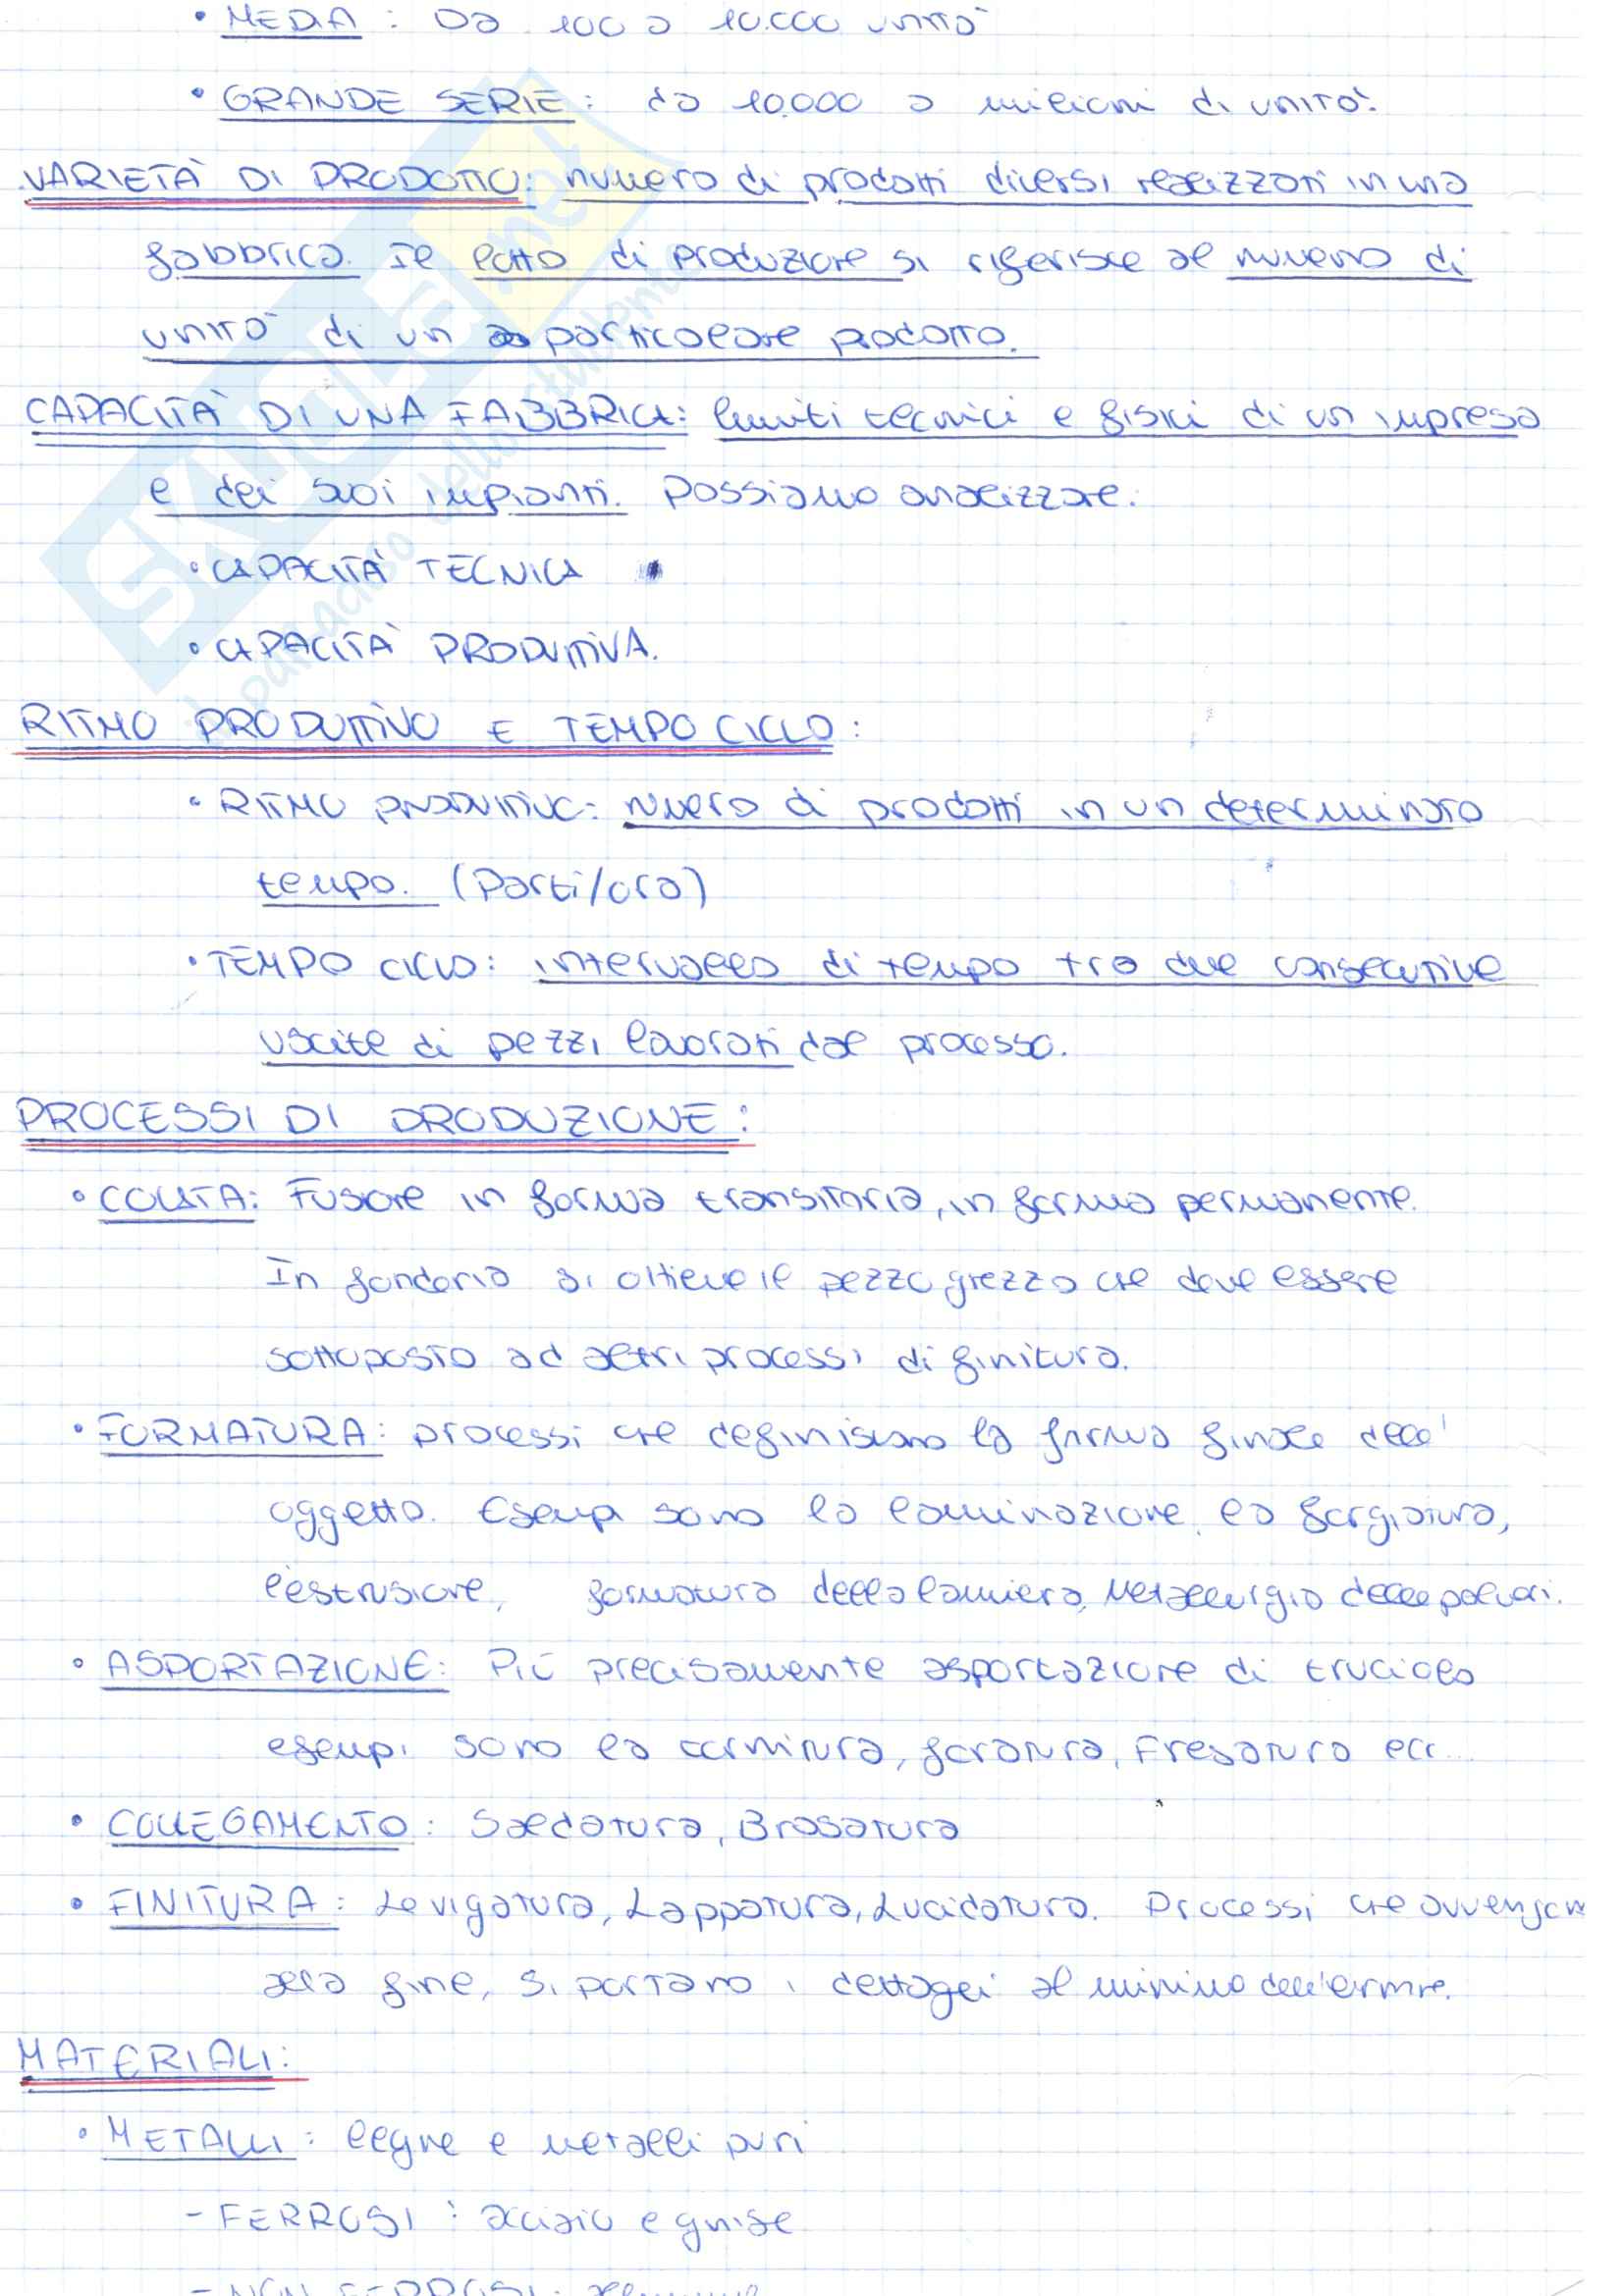 • MEDIA : Da 100 a 10.000 unità
• GRANDE SERIE : da 10.000 a milioni di unità.
VARIETÀ DI PRODOTTO: numero di prodotti diversi realizzati in una
fabbrica. Il lotto di produzione si riferisce al numero di
unità di un particolare prodotto.
CAPACITÀ DI UNA FABBRICA: limiti tecnici e fisici di un impresa
e dei suoi impianti. Possiamo analizzare:
• CAPACITÀ TECNICA
• CAPACITÀ PRODUTTIVA.
RITMO PRODUTTIVO E TEMPO CICLO :
• RITMO PRODUTTIVO: numero di prodotti in un determinato
tempo. (Parti/ora)
• TEMPO CICLO: intervallo di tempo tra due consecutive
uscite di pezzi lavorati dal processo.
PROCESSI DI PRODUZIONE :
• COLATA: Fusione in forma transitoria, in forma permanente.
In fonderia si ottiene il pezzo grezzo che deve essere
sottoposto ad altri processi di finitura.
• FORMATURA: processi che definiscono la forma finale dell'
oggetto. Esempi sono la laminazione, la forgiatura,
l'estrusione, formatura della lamiera, Metallurgia delle polveri.
• ASPORTAZIONE: Più precisamente asportazione di truciolo
esempi sono la tornitura, foratura, Fresatura ecc...
• COLLEGAMENTO : Saldatura, Brasatura
• FINITURA : Levigatura, Lappatura, Lucidatura. Processi che avvengono
alla fine, si portano i dettagli al minimo dell'errore.
MATERIALI:
• METALLI : leghe e metalli puri
- FERROSI : acciaio e ghise
- NON FERROSI : alluminio
SKUOLA.net
il paradiso dello studente